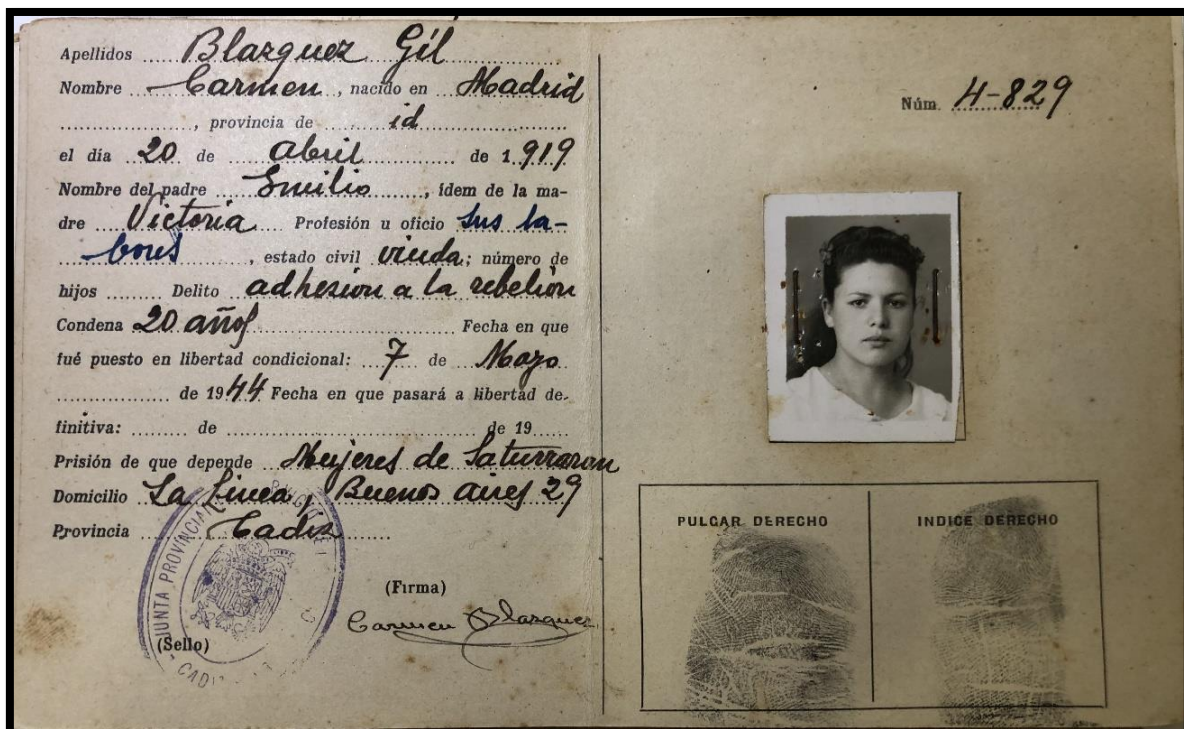 Apellidos Blazquez Gil
Nombre Carmen, nacido en Madrid
, provincia de id
el día 20 de Abril de 1.919
Nombre del padre Emilio, ídem de la ma-
dre Victoria Profesión u oficio sus la-
bores, estado civil viuda; número de
hijos Delito adhesion a la rebelion
Condena 20 años Fecha en que
fué puesto en libertad condicional: 7 de Mayo
de 1944 Fecha en que pasará a libertad de-
finitiva: de de 19
Prisión de que depende Mujeres de Saturraran
Domicilio La Linea, Buenos aires 29
Provincia Cadiz
(Firma)
Carmen Blazquez
(Sello)
JUNTA PROVINCIAL
CADI
Núm. 4-829
PULGAR DERECHO
INDICE DERECHO